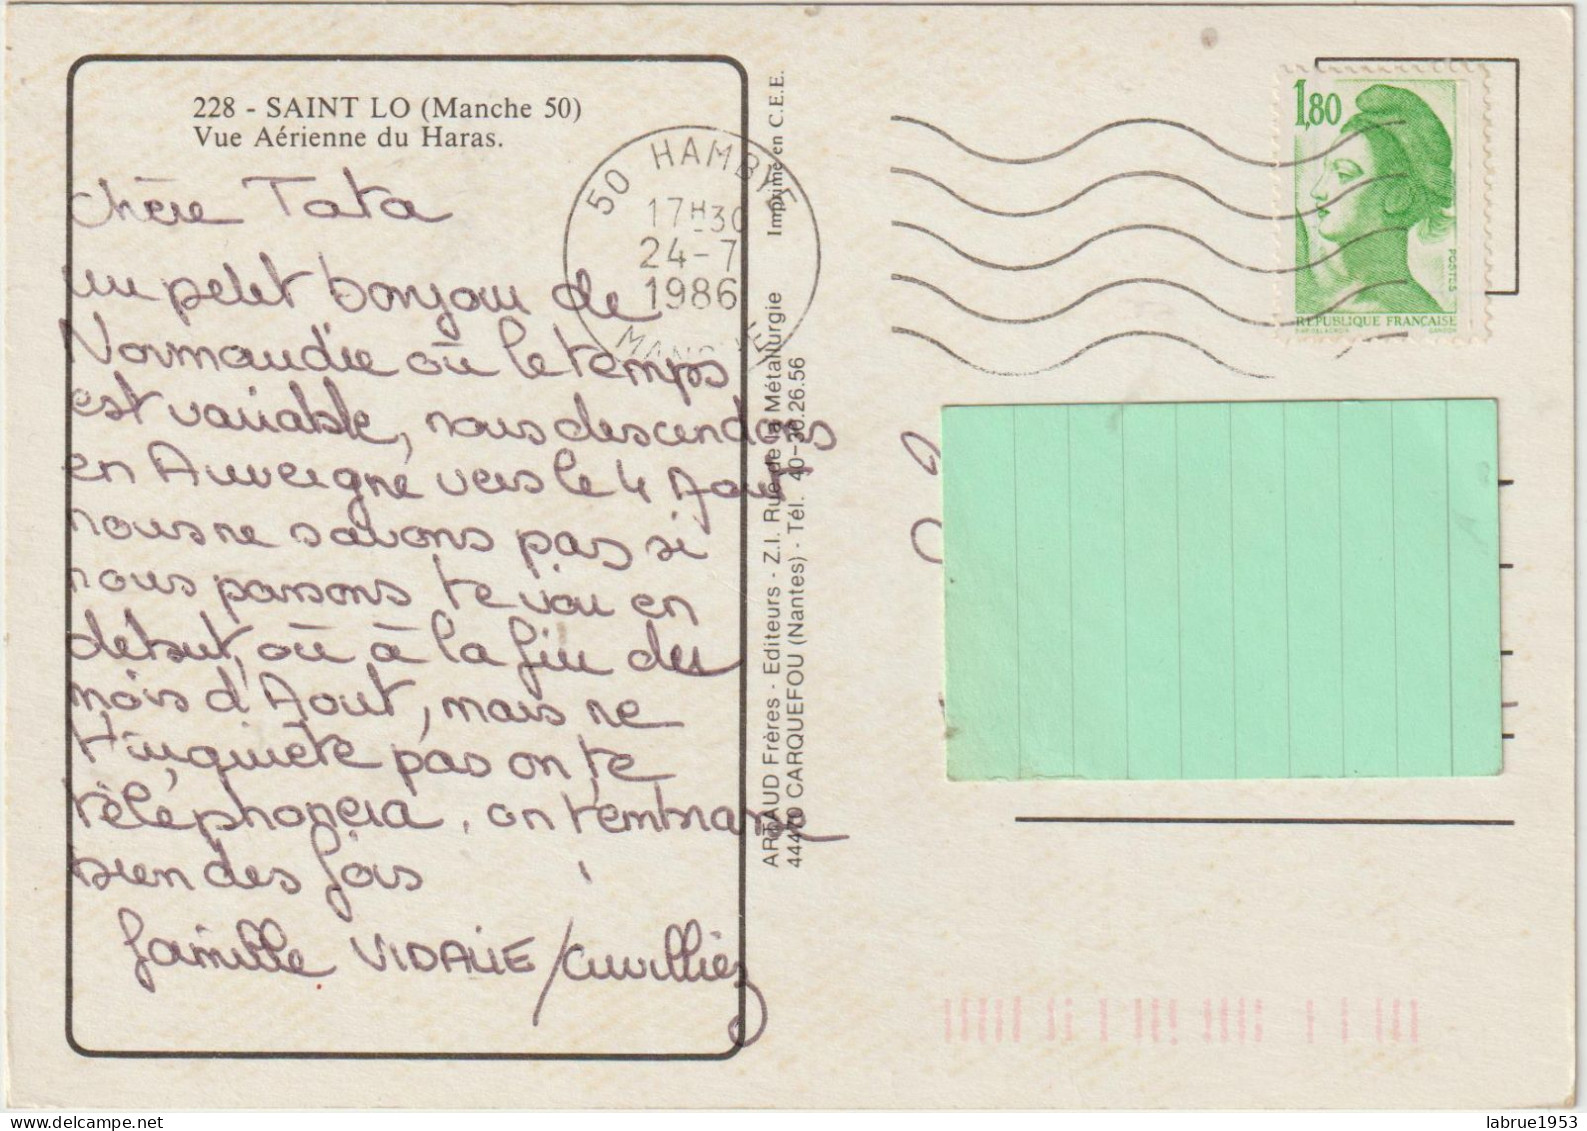 228 - SAINT LO (Manche 50)
Vue Aérienne du Haras.
chère Tata
un petit bonjour de
Normandie où le temps
est variable, nous descendons
en Auvergne vers le 4 Aout
nous ne savons pas si
nous passons te voir en
debut, où à la fin du
mois d'Aout, mais ne
t'inquiète pas on te
téléphonera, on t'embrasse
bien des fois
famille VIDALIE /
50 HAMBYE
17H30
24-7
1986
MANCHE
ARTAUD Frères - Editeurs - Z.I. Rue de la Métallurgie Imprimé en C.E.E.
44470 CARQUEFOU (Nantes) - Tél. 40-30.26.56
1,80
POSTES
REPUBLIQUE FRANÇAISE
labrue1953